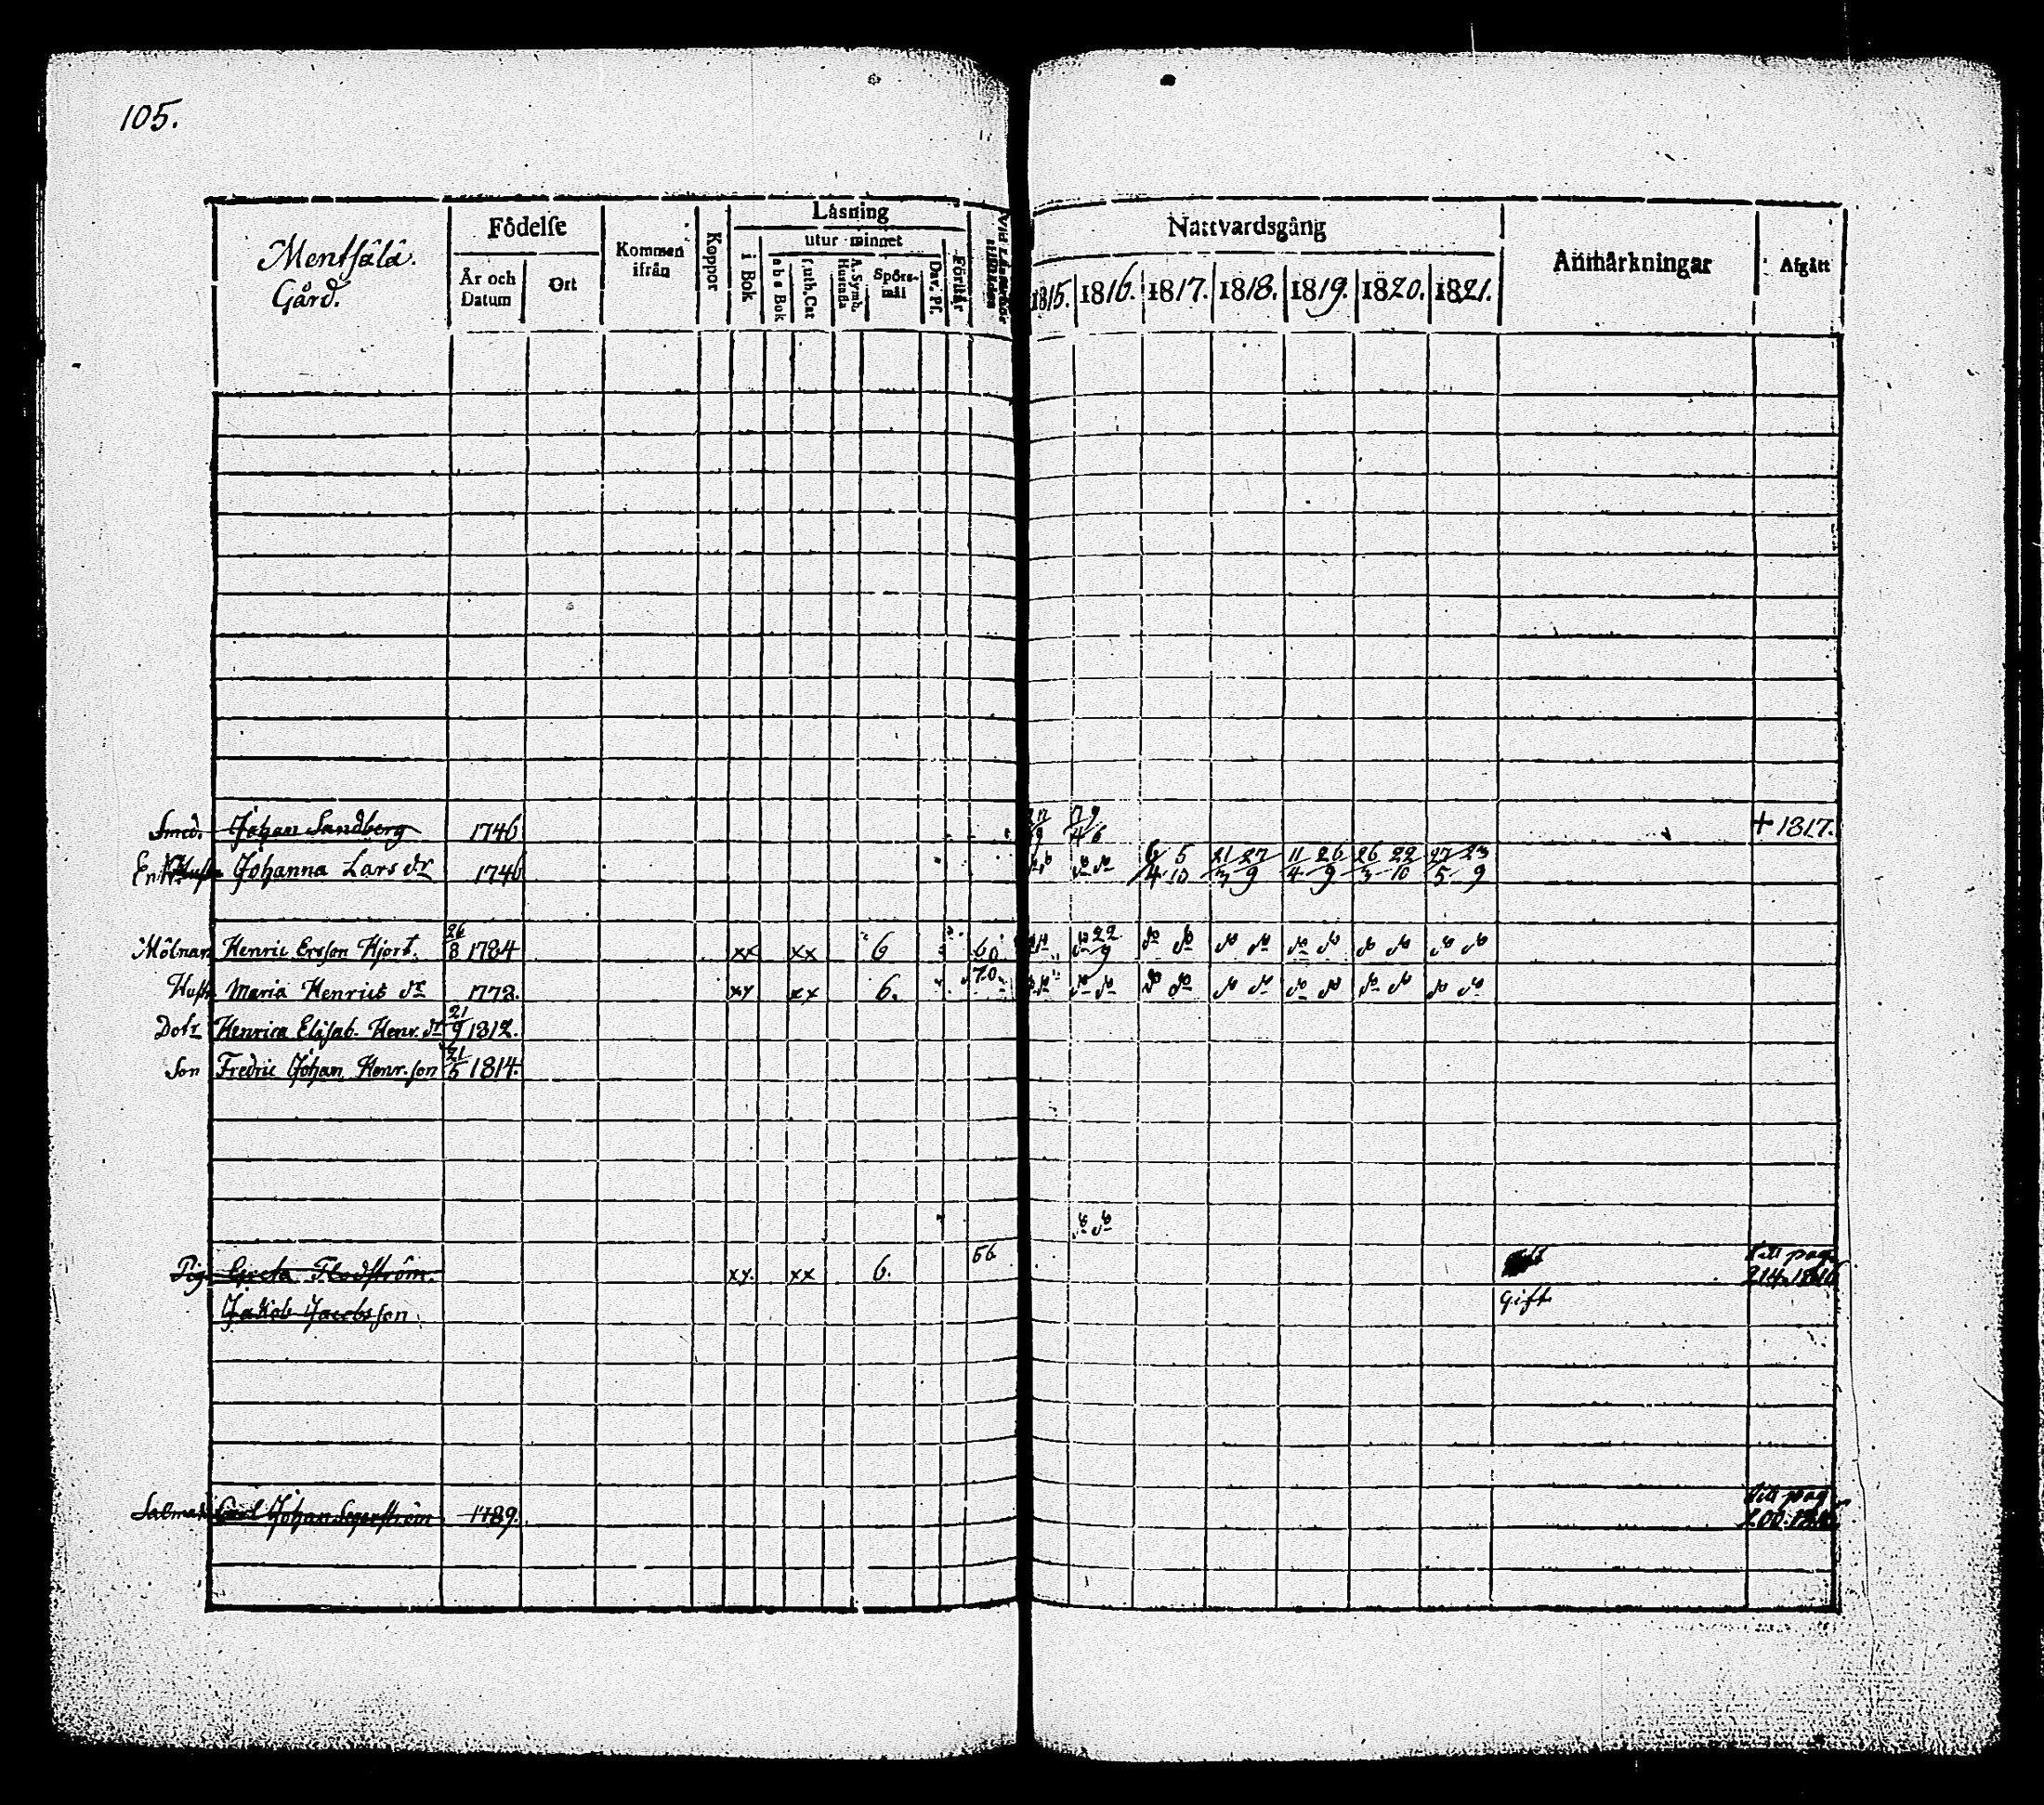 105.
Mentsälä Gård.
Födelse
År och Datum
Ort
Kommen ifrån
Koppor
Läsning
i Bok
utur minnet
a b c Bok
Luth. Cat
A. Symb. Hustafla
Spörs-mål
Dav. Ps.
Förstår
Nattvardsgång
1815. 1816. 1817. 1818. 1819. 1820. 1821.
Anmärkningar
Afgått
Smed. Johan Sandberg 1746 27/9 7/4 9/6 + 1817.
Enk. Johanna Lars dr 1746 do do do do 6/4 5/10 21/3 27/9 11/4 26/9 26/3 22/10 27/5 23/9
Mölnar Henric Ersson Hjort. 26/8 1784 xx xx 6 60 do do do 22/9 do do do do do do do do do do
Hustr. Maria Henrics dr 1772. xx xx 6. 70 do do do do do do do do do do do do do do
Dotr Henrica Elisab. Henr. dr 21/9 1812.
Son Fredric Johan Henr. son 21/5 1814.
do do
Pig. Greta Flodström. xx. xx 6. 56 till pag
214. 1816
Jakob Jacobsson. Gift
Carl Johan Segerström 1789. till pag
200.